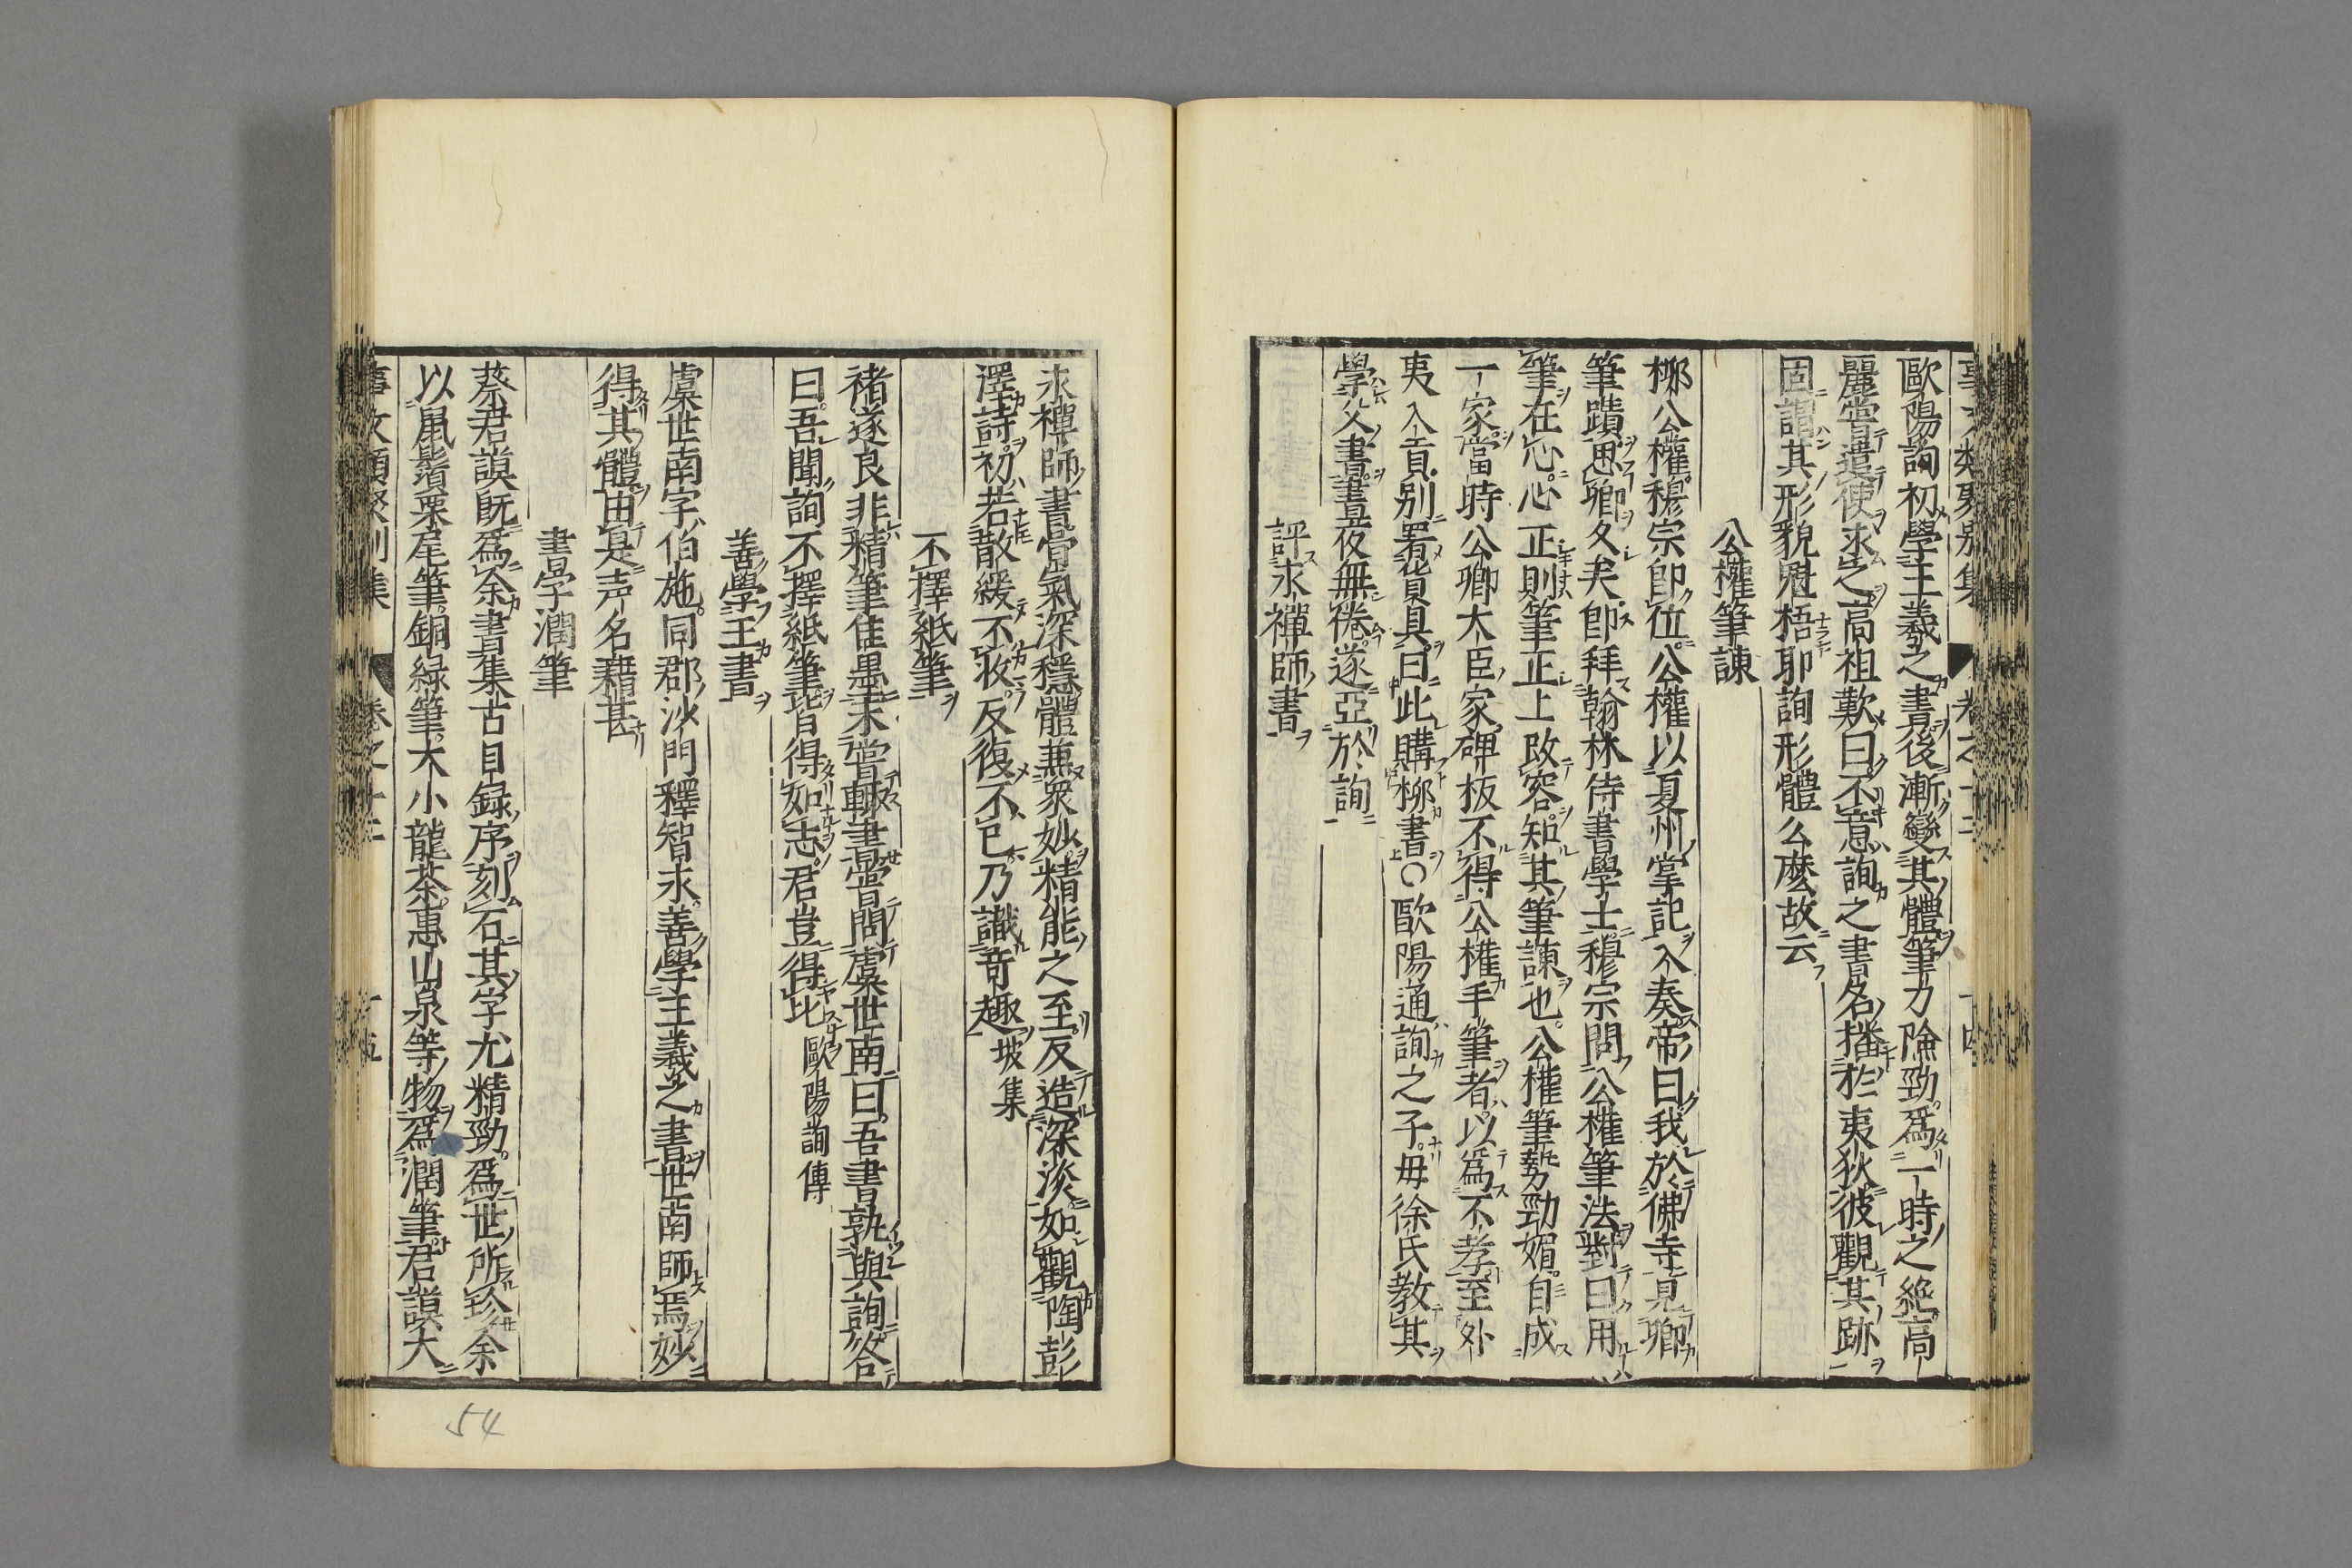 歐陽詢初學王羲之書後漸變其體筆力險勁爲一時之絶高
麗嘗遣使求之高祖歎曰不意詢之書名播於夷狄彼觀其跡
固謂其形貌魁梧耶詢形體么麽故云
公權筆諫
柳公權穆宗即位公權以夏州掌記入奏帝曰我於佛寺見卿
筆蹟思卿久矣即拜翰林侍書學士穆宗問公權筆法對曰用
筆在心心正則筆正上改容知其筆諫也公權筆勢勁媚自成
一家當時公卿大臣家碑板不得公權手筆者以爲不孝至外
夷入貢別署貨具曰此購柳書○歐陽通詢之子母徐氏教其
學父書晝夜無倦遂亞於詢
評永禪師書
永禪師書骨氣深穩體兼衆妙精能之至反造深淡如觀陶彭
澤詩初若散緩不收反復不已乃識奇趣 坡集
不擇紙筆
禇遂良非精筆佳墨未嘗輙書嘗問虞世南曰吾書孰與詢答
曰吾聞詢不擇紙筆皆得如志君豈得此 歐陽詢傳
善學王書
虞世南字伯施同郡沙門釋智永善學王羲之書世南師焉妙
得其體由是声名藉甚
書字潤筆
蔡君謨既爲余書集古目録序刻石其字尤精勁爲世所珍余
以鼠鬚栗尾筆銅緑筆大小龍茶惠山泉等物爲潤筆君謨大
事文類聚別集 卷之十二 十五
54